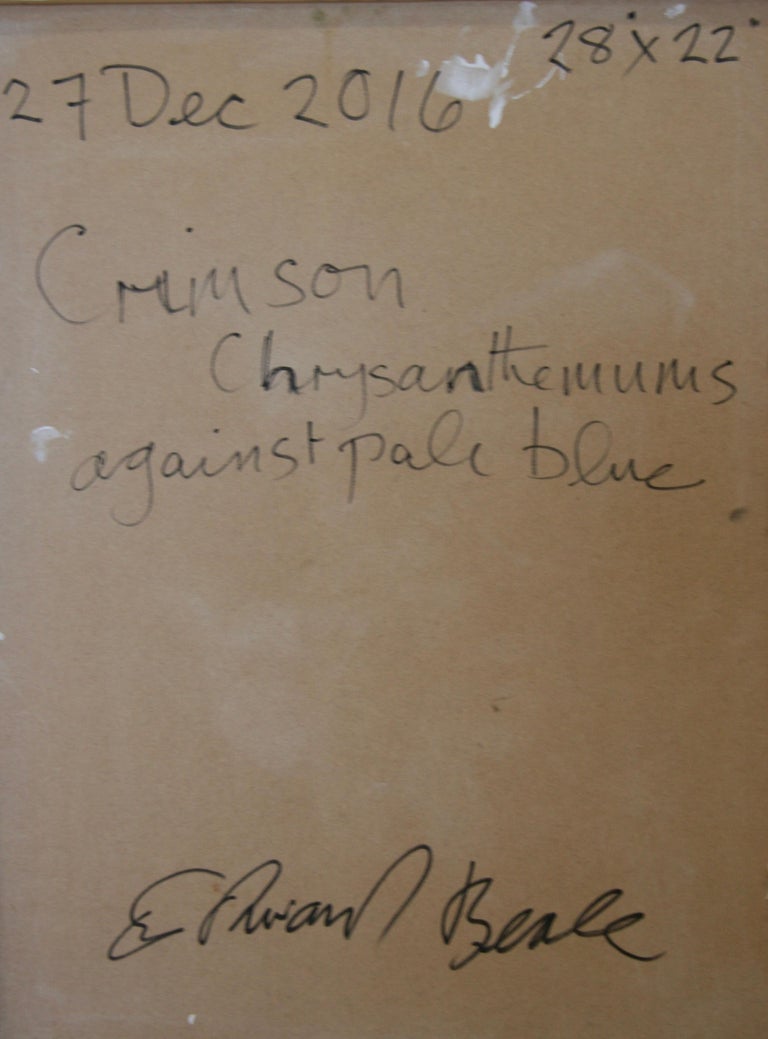 28"x 22"
27 Dec 2016
Crimson
Chrysanthemums
against pale blue
Edward Beale